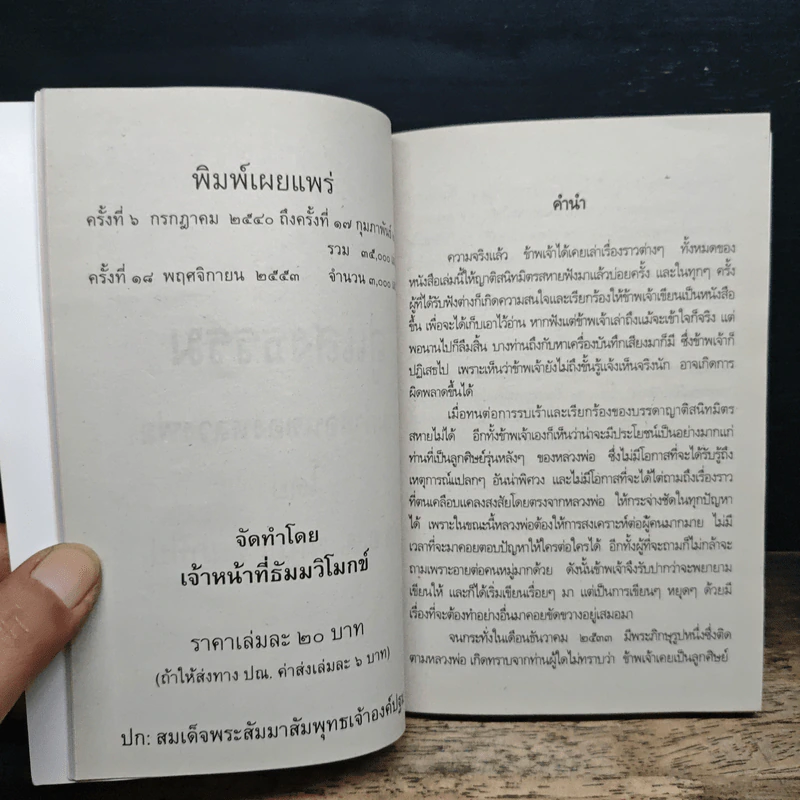 พิมพ์เผยแพร่
ครั้งที่ ๖ กรกฎาคม ๒๕๔๐ ถึงครั้งที่ ๑๗ กุมภาพันธ์
รวม ๓๕,๐๐๐
ครั้งที่ ๑๘ พฤศจิกายน ๒๕๕๓ จำนวน ๓,๐๐๐
จัดทำโดย
เจ้าหน้าที่ธัมมวิโมกข์
ราคาเล่มละ ๒๐ บาท
(ถ้าให้ส่งทาง ปณ. ค่าส่งเล่มละ ๖ บาท)
ปก: สมเด็จพระสัมมาสัมพุทธเจ้าองค์ปฐม
คำนำ
ความจริงแล้ว ข้าพเจ้าได้เคยเล่าเรื่องราวต่างๆ ทั้งหมดของ
หนังสือเล่มนี้ให้ญาติสนิทมิตรสหายฟังมาแล้วบ่อยครั้ง และในทุกๆ ครั้ง
ผู้ที่ได้รับฟังต่างก็เกิดความสนใจและเรียกร้องให้ข้าพเจ้าเขียนเป็นหนังสือ
ขึ้น เพื่อจะได้เก็บเอาไว้อ่าน หากฟังแต่ข้าพเจ้าเล่าถึงแม้จะเข้าใจก็จริง แต่
พอนานไปก็ลืมสิ้น บางท่านถึงกับหาเครื่องบันทึกเสียงมาก็มี ซึ่งข้าพเจ้าก็
ปฏิเสธไป เพราะเห็นว่าข้าพเจ้ายังไม่ถึงขั้นรู้แจ้งเห็นจริงนัก อาจเกิดการ
ผิดพลาดขึ้นได้
เมื่อทนต่อการรบเร้าและเรียกร้องของบรรดาญาติสนิทมิตร
สหายไม่ได้ อีกทั้งข้าพเจ้าเองก็เห็นว่าน่าจะมีประโยชน์เป็นอย่างมากแก่
ท่านที่เป็นลูกศิษย์รุ่นหลังๆ ของหลวงพ่อ ซึ่งไม่มีโอกาสที่จะได้รับรู้ถึง
เหตุการณ์แปลกๆ อันน่าพิศวง และไม่มีโอกาสที่จะได้ไต่ถามถึงเรื่องราว
ที่ตนเคลือบแคลงสงสัยโดยตรงจากหลวงพ่อ ให้กระจ่างชัดในทุกปัญหา
ได้ เพราะในขณะนี้หลวงพ่อต้องให้การสงเคราะห์ต่อผู้คนมากมาย ไม่มี
เวลาที่จะมาคอยตอบปัญหาให้ใครต่อใครได้ อีกทั้งผู้ที่จะถามก็ไม่กล้าจะ
ถามเพราะอายต่อคนหมู่มากด้วย ดังนั้นข้าพเจ้าจึงรับปากว่าจะพยายาม
เขียนให้ และก็ได้เริ่มเขียนเรื่อยๆ มา แต่เป็นการเขียนๆ หยุดๆ ด้วยมี
เรื่องที่จะต้องทำอย่างอื่นมาคอยขัดขวางอยู่เสมอมา
จนกระทั่งในเดือนธันวาคม ๒๕๓๓ มีพระภิกษุรูปหนึ่งซึ่งติด
ตามหลวงพ่อ เกิดทราบจากท่านผู้ใดไม่ทราบว่า ข้าพเจ้าเคยเป็นลูกศิษย์